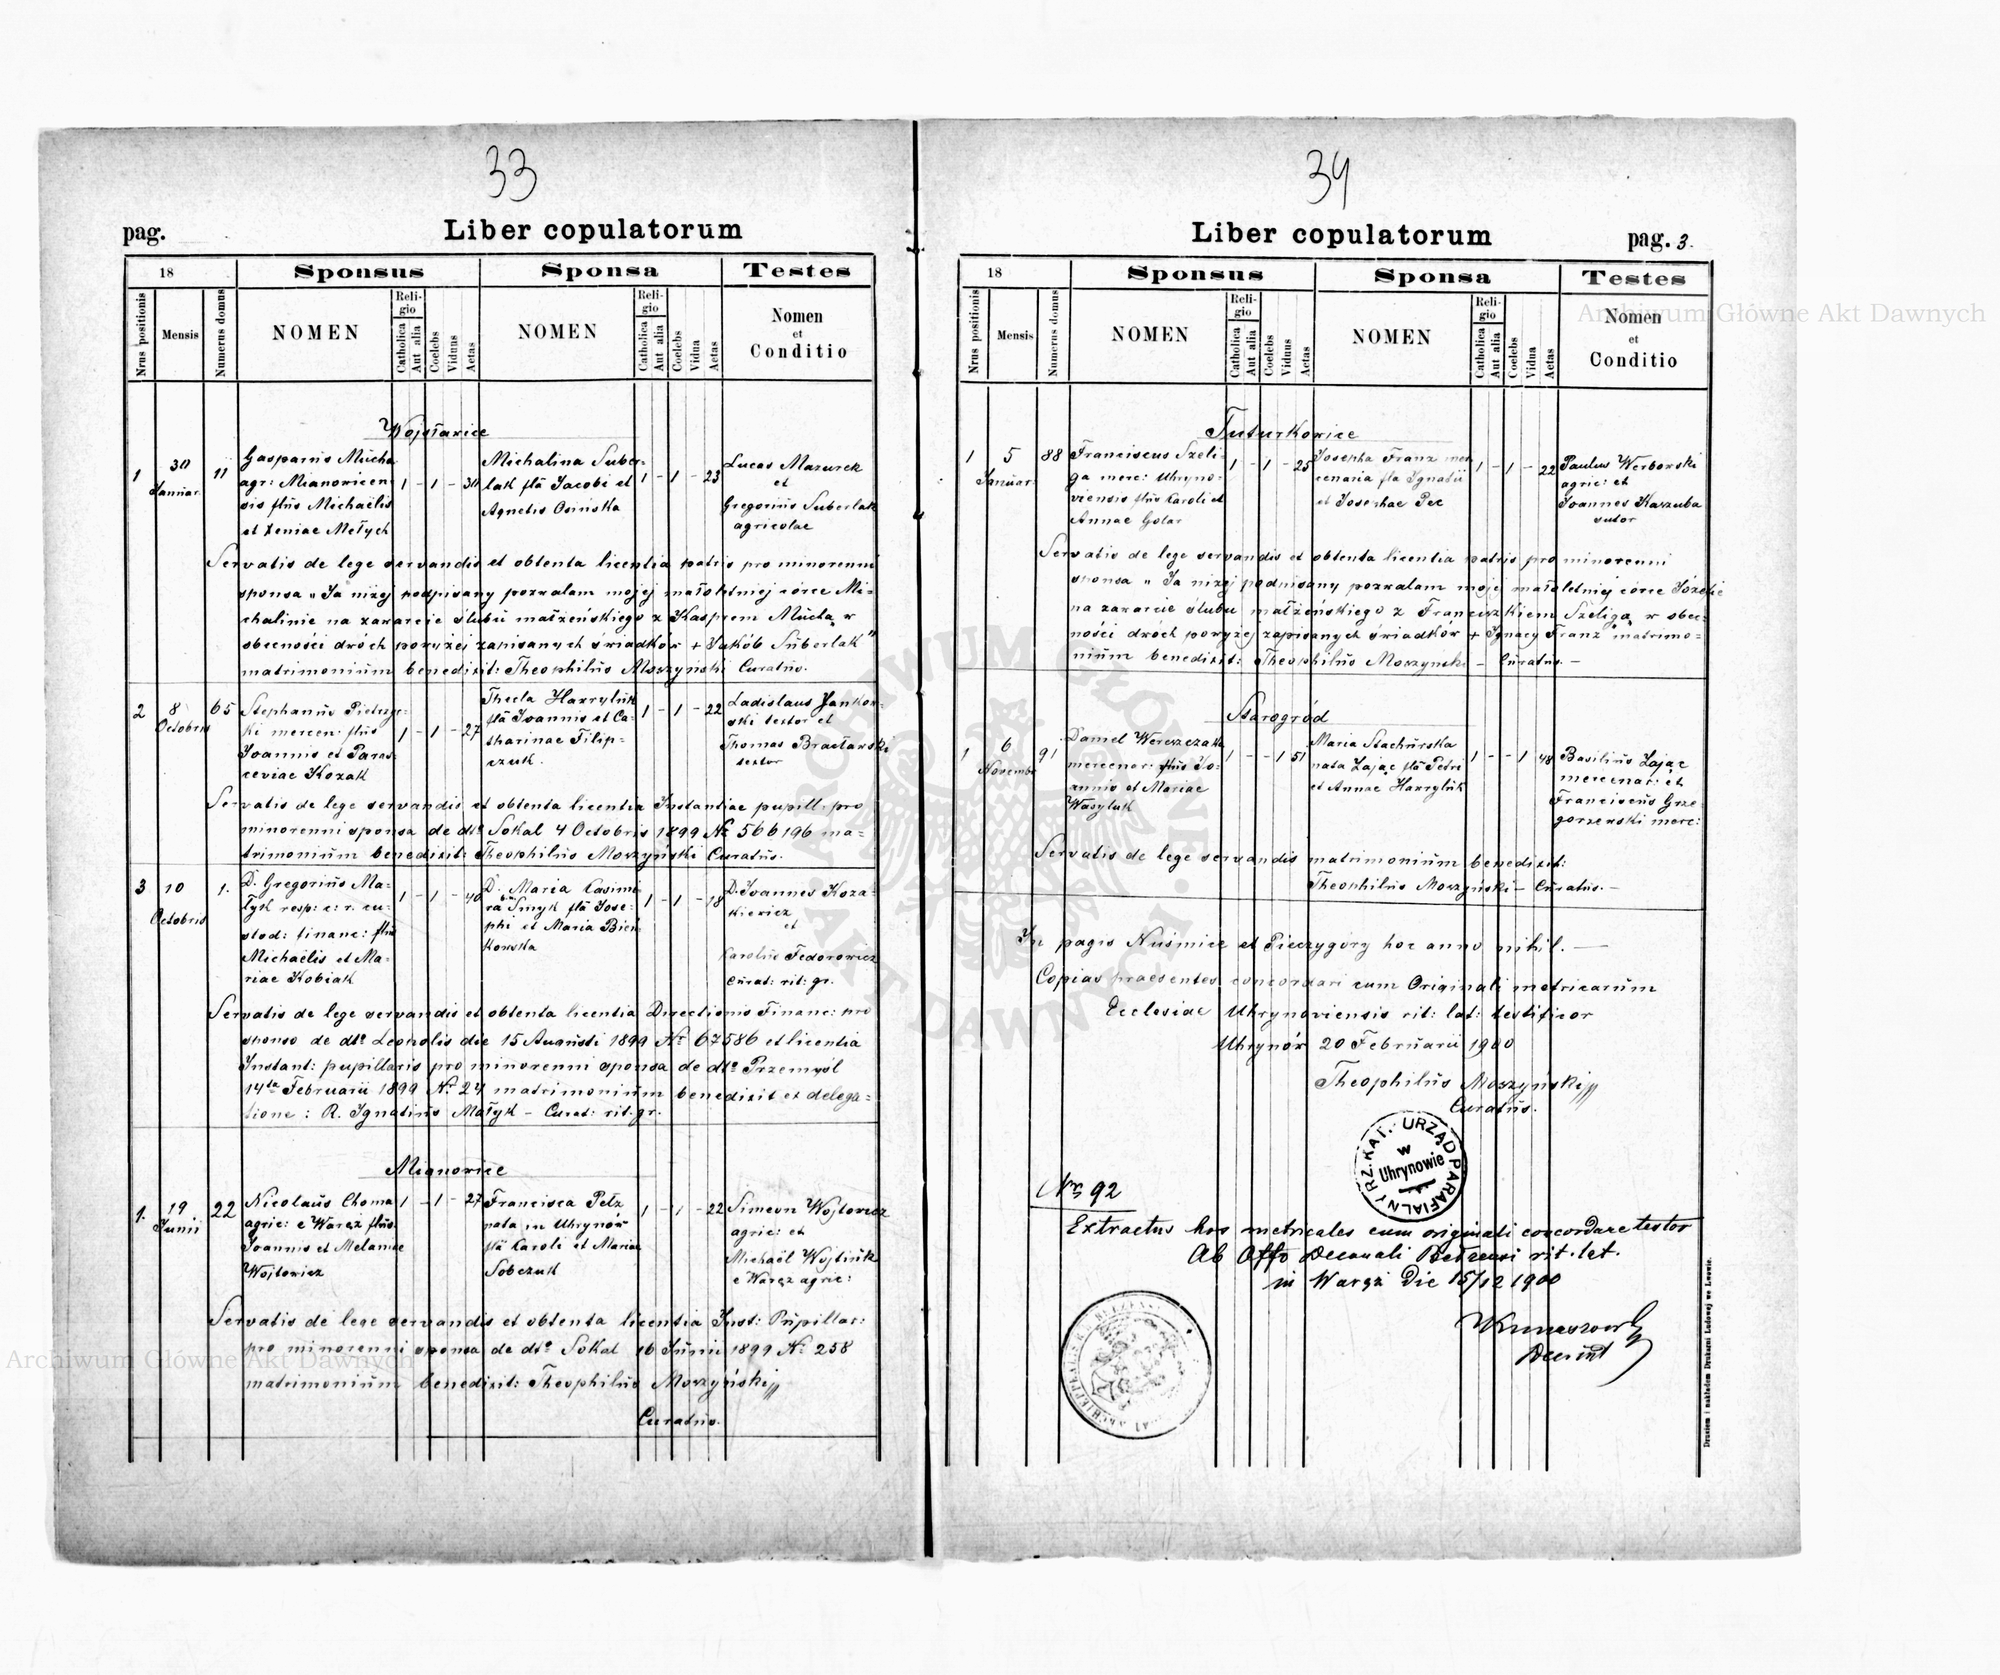 33
pag.
Liber copulatorum
18
Sponsus
Sponsa
Testes
Nrus positionis
Mensis
Numerus domus
NOMEN
Reli-
gio
Catholica
Aut alia
Coelebs
Viduus
Aetas
NOMEN
Reli-
gio
Catholica
Aut alia
Coelebs
Vidua
Aetas
Nomen
et
Conditio
Wojsławice
1
30
Januar:
11
Gasparus Mucha
agr: Mianovicen-
sis flũs Michaëlis
et Xeniae Mełych
1 - 1 - 30
Michalina Suber-
lak flã Jacobi et
Agnetis Osińska
1 - 1 - 23
Lucas Mazurek
et
Gregoriŭs Suberlak
agricolae
Servatis de lege servandis et obtenta licentia patris pro minorenni
sponsa „Ja niżej podpisany pozwalam mojej małoletniej córce Mi-
chalinie na zawarcie ślubŭ małżeńskiego z Kasprem Mŭchą w
obecności dwóch powyżej zapisanych świadków + Jakób Sŭberlak"
matrimoniŭm benedixit: Theophilŭs Moszyński Curatŭs.
2
8
Octobris
65
Stephanŭs Pietrzyc-
ki mercen: flŭs
Joannis et Paras-
ceviae Kozak
1 - 1 - 27
Thecla Hawrylŭk
flã Joannis et Ca-
tharinae Filip-
czuk.
1 - 1 - 22
Ladislaus Jankow-
ski textor et
Thomas Bractawski
textor
Servatis de lege servandis et obtenta licentia Instantiae pupill: pro
minorenni sponsa de dtº Sokal 4 Octobris 1899 Nº 566196 ma-
trimoniŭm benedixit: Theophilŭs Moszyński Curatŭs.
3
10
Octobris
1.
D. Gregoriŭs Ma-
łyk resp: c: r. cu-
stod: financ: flŭs
Michaëlis et Ma-
riae Kobiak
1 - 1 - 40
D. Maria Casimi-
ra Smyk flã Jose-
phi et Maria Bień-
kowska
1 - 1 - 18
D. Joannes Koza-
kiewicz
et
Fedorowicz
Curat: rit: gr.
Servatis de lege servandis et obtenta licentia Directionis Financ: pro
sponso de dtº Leopolis die 15 Augŭsti 1899 Nº 67586 et licentia
Instant: pupillaris pro minorenni sponsa de dtº Przemyśl
14ta Februarii 1899 Nº 24 matrimoniŭm benedixit ex delega-
tione: R. Ignatiŭs Małyk - Curat: rit: gr.
Mianowice
1.
19
Junii
22
Nicolaŭs Choma
agric: e Waręż flŭs
Joannis et Melaniae
Wojtowicz
1 - 1 - 27
Francisca Pełz
nata in Uhrynów
flã Caroli et Mariae
Sobczuk
1 - 1 - 22
Simeon Wojtowicz
agric: et
Michaël Wojtiŭk
e Waręż agric:
Servatis de lege servandis et obtenta licentia Inst: Pŭpillar:
pro minorenni sponsa de dtº Sokal 16 Junii 1899 Nº 258
matrimoniŭm benedixit: Theophilŭs Moszyński
Curatŭs.
34
Liber copulatorum
pag. 3.
18
Sponsus
Sponsa
Testes
Nrus positionis
Mensis
Numerus domus
NOMEN
Reli-
gio
Catholica
Aut alia
Coelebs
Viduus
Aetas
NOMEN
Reli-
gio
Catholica
Aut alia
Coelebs
Vidua
Aetas
Nomen
et
Conditio
Tuturkowice
1
5
Januar:
88
Franciscus Szeli-
ga merc: Uhryno-
viensis flŭs Caroli et
Annae Golar
1 - 1 - 25
Josepha Franz mer-
cenaria fla Ignatii
et Josephae Pec
1 - 1 - 22
Paulus Werborski
agric: et
Joannes Kaszuba
sutor
Servatis de lege servandis et obtenta licentia patris pro minorenni
sponsa „Ja niżej podpisany pozwalam mojej małoletniej córce Józefie
na zawarcie ślubu małżeńskiego z Franciszkiem Szeligą w obec-
ności dwóch powyżej zapisanych świadków + Ignacy Franz" matrimo-
niŭm benedixit: Theophilŭs Moszyński - Curatŭs. -
Starogród
1
6
Novembr
91
Daniel Wereszczaka
mercenar: flŭs Jo-
annis et Mariae
Wasyluk
1 - - 1 51
Maria Stachŭrska
nata Zając flã Petri
et Annae Hawrylŭk
1 - - 1 48
Basiliŭs Zając
mercenar: et
Franciscŭs Grze-
gorzewski merc:
Servatis de lege servandis matrimoniŭm benedixit:
Theophilŭs Moszyński - Curatŭs. -
In pagis Nuśmice et Pieczygóry hoc anno nihil. -
Copias praesentes concordari cum Originali metricarŭm
Ecclesiae Uhrynoviensis rit: lat: testificor
Uhrynów 20 Februarii 1900
Theophilŭs Moszyński
Curatŭs.
RZ. KAT. URZĄD PARAFIALNY
w
Uhrynowie
Nr 92
Extractus hos metricales cum originali concordare testor
Ab Offo Decanali Bełzensi rit. lat.
in Waręż die 15/12 1900
Drukiem i nakładem Drukarni Ludowej we Lwowie.
Archiwum Główne Akt Dawnych
Archiwum Główne Akt Dawnych
ARCHIWUM GŁÓWNE AKT DAWNYCH